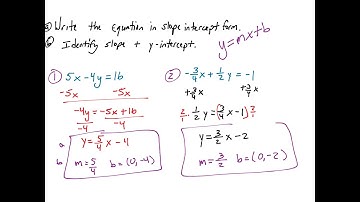 a) Write the Equation in slope intercept form.
b) Identify slope + y-intercept.
y=mx+b
① 5x-4y=16
-5x -5x
-4y=-5x+16
-4 -4
a y=5/4x-4
b m=5/4 b=(0,-4)
② -3/4x+1/2y=-1
+3/4x +3/4x
2/1·1/2y=(3/4x-1)2/1
y=3/2x-2
m=3/2 b=(0,-2)